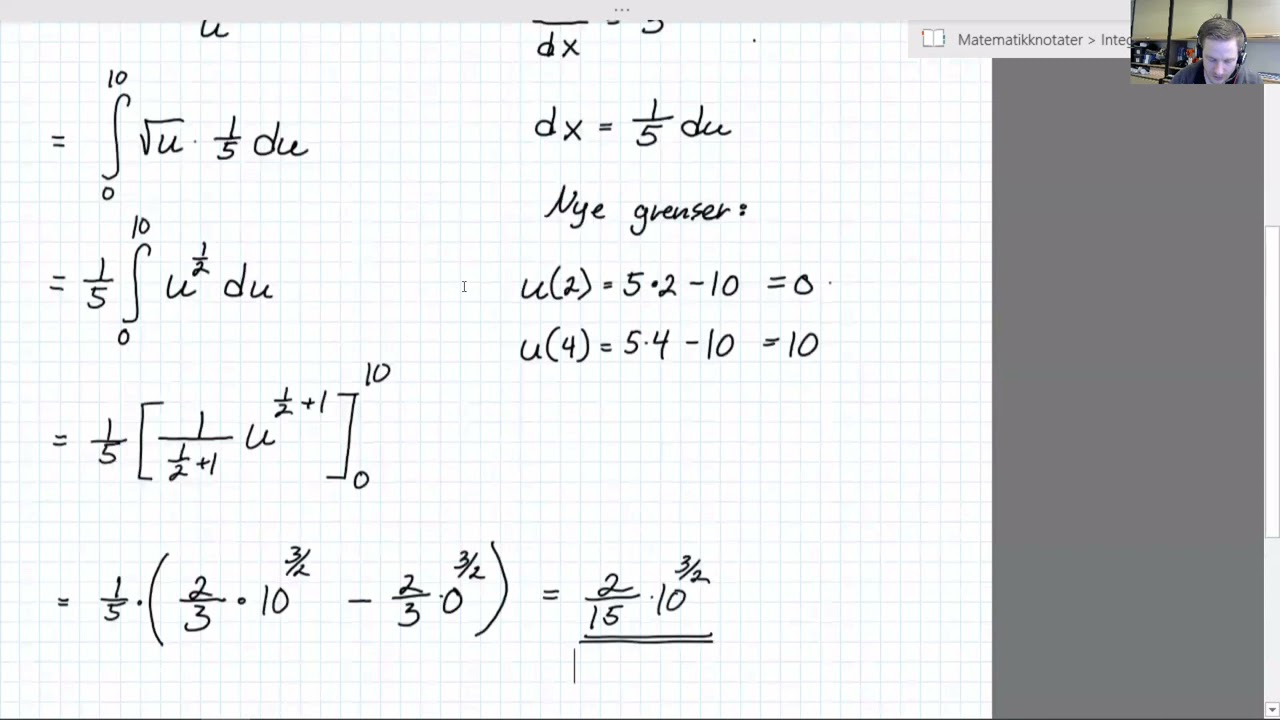 u
dx = 5
Matematikknotater > Integ
= ∫₀¹⁰ √u · 1/5 du
dx = 1/5 du
Nye grenser:
= 1/5 ∫₀¹⁰ u^(1/2) du
u(2) = 5·2 - 10 = 0
u(4) = 5·4 - 10 = 10
= 1/5 [ 1/(1/2 + 1) u^(1/2 + 1) ]₀¹⁰
= 1/5 · ( 2/3 · 10^(3/2) - 2/3 · 0^(3/2) ) = 2/15 · 10^(3/2)